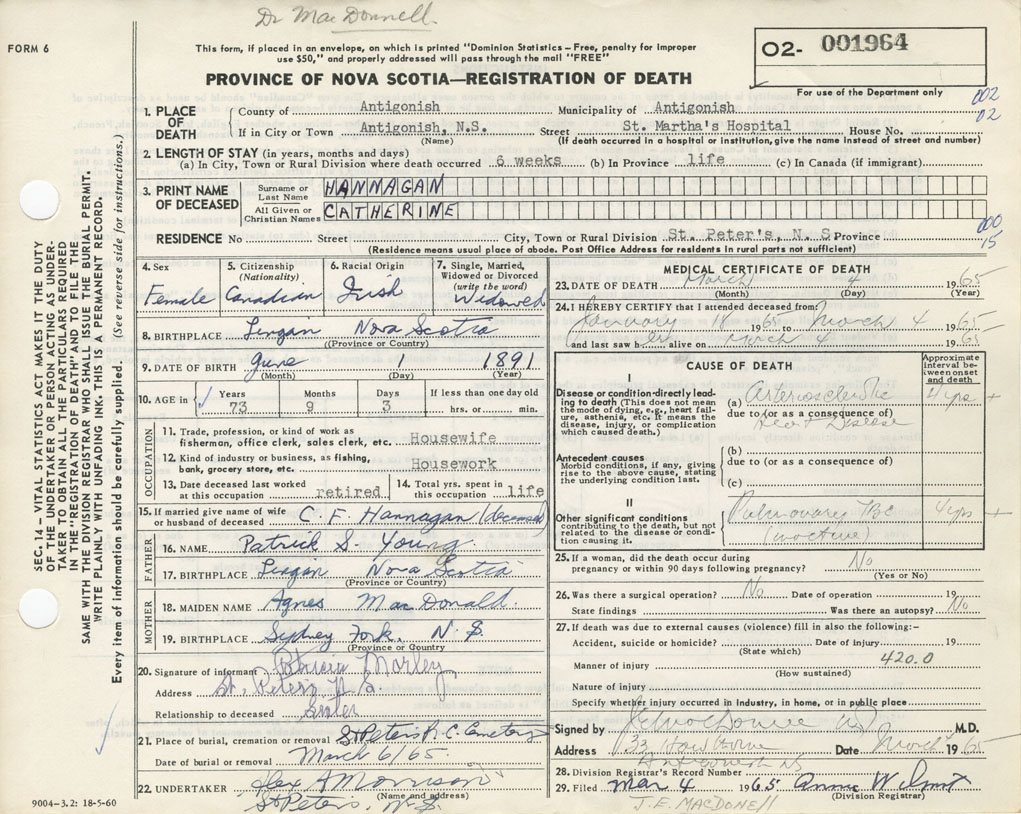 Dr MacDonnell.
FORM 6
This form, if placed in an envelope, on which is printed "Dominion Statistics – Free, penalty for improper
use $50," and properly addressed will pass through the mail "FREE"
PROVINCE OF NOVA SCOTIA—REGISTRATION OF DEATH
O2- 001964
For use of the Department only
002
02
1. PLACE OF DEATH
County of Antigonish Municipality of Antigonish
If in City or Town Antigonish, N.S. Street St. Martha's Hospital House No.
(Name) (If death occurred in a hospital or institution, give the name instead of street and number)
2. LENGTH OF STAY (in years, months and days)
(a) In City, Town or Rural Division where death occurred 6 weeks (b) In Province life (c) In Canada (if immigrant)
3. PRINT NAME OF DECEASED
Surname or Last Name HANNAGAN
All Given or Christian Names CATHERINE
000
15
RESIDENCE No Street City, Town or Rural Division St. Peter's, N. S. Province
(Residence means usual place of abode. Post Office Address for residents in rural parts not sufficient)
4. Sex Female
5. Citizenship (Nationality) Canadian
6. Racial Origin Irish
7. Single, Married, Widowed or Divorced (write the word) Widowed
8. BIRTHPLACE Lingan Nova Scotia
(Province or Country)
9. DATE OF BIRTH June 1 1891
(Month) (Day) (Year)
10. AGE in Years 73 Months 9 Days 3 If less than one day old hrs. or min.
OCCUPATION
11. Trade, profession, or kind of work as
fisherman, office clerk, sales clerk, etc. Housewife
12. Kind of industry or business, as fishing,
bank, grocery store, etc. Housework
13. Date deceased last worked at this occupation retired
14. Total yrs. spent in this occupation life
15. If married give name of wife
or husband of deceased C. F. Hannagan (deceased)
FATHER
16. NAME Patrick S. Young
17. BIRTHPLACE Lingan Nova Scotia
(Province or Country)
MOTHER
18. MAIDEN NAME Agnes MacDonald.
19. BIRTHPLACE Sydney Fork. N. S.
(Province or Country
20. Signature of informant Patricia Morley
Address St. Peter's N S
Relationship to deceased Sister
21. Place of burial, cremation or removal St Peters R. C. Cemetery
Date of burial or removal March 6/65.
22. UNDERTAKER Alex A Morrison
(Name and address)
St Peters, N. S.
9004–3.2: 18-5-60
MEDICAL CERTIFICATE OF DEATH
23. DATE OF DEATH March 4 1965
(Month) (Day) (Year)
24. I HEREBY CERTIFY that I attended deceased from
January 18 1965 to March 4 1965
and last saw her alive on March 4 1965
CAUSE OF DEATH
Approximate interval between onset and death
I
Disease or condition directly leading to death (This does not mean the mode of dying, e.g., heart failure, asthenia, etc. It means the disease, injury, or complication which caused death.)
(a) Arteriosclerotic 4 yrs +
due to (or as a consequence of)
Heart Disease
Antecedent causes
Morbid conditions, if any, giving rise to the above cause, stating the underlying condition last.
(b)
due to (or as a consequence of)
(c)
II
Other significant conditions
contributing to the death, but not related to the disease or condition causing it.
Pulmonary Tbc 4 yrs +
(inactive)
25. If a woman, did the death occur during
pregnancy or within 90 days following pregnancy? No
(Yes or No)
26. Was there a surgical operation? No Date of operation 19
State findings Was there an autopsy? No
27. If death was due to external causes (violence) fill in also the following:–
Accident, suicide or homicide? Date of injury 19
(State which)
Manner of injury 420.0
(How sustained)
Nature of injury
Specify whether injury occurred in industry, in home, or in public place
Signed by M.D.
Address 33 Hawthorne Date March 1965
Antigonish NS
28. Division Registrar's Record Number
29. Filed Mar 4 1965
(Division Registrar)
J. E. MACDONELL
SEC. 14 – VITAL STATISTICS ACT MAKES IT THE DUTY
OF THE UNDERTAKER OR PERSON ACTING AS UNDER-
TAKER TO OBTAIN ALL THE PARTICULARS REQUIRED
IN THE "REGISTRATION OF DEATH" AND TO FILE THE
SAME WITH THE DIVISION REGISTRAR WHO SHALL ISSUE THE BURIAL PERMIT.
WRITE PLAINLY WITH UNFADING INK. THIS IS A PERMANENT RECORD.
Every item of information should be carefully supplied. (See reverse side for instructions.)